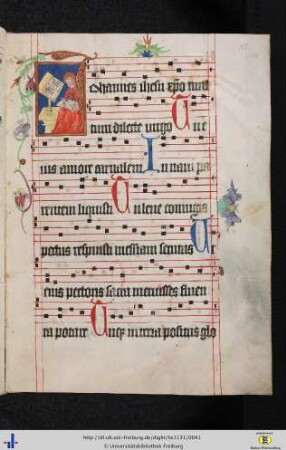 Johannes ihesu xpo mul
tum dilecte virgo Tu e
ius amore carnalem In naui pa
rentem liquisti Tu lene coniugis
pectus respuisti messiam secutus Ut
eius pectoris sacra meruisses fluen
ta potare Tuq in terra positus glo
http://dl.ub.uni-freiburg.de/diglit/hs1131/0041
© Universitätsbibliothek Freiburg